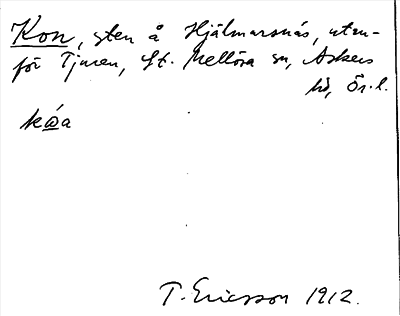 Kon, sten å Hjälmarsnäs, utan-
för Tjuren, St. Mellösa sn, Askers
hd, Ör. l.
T. Ericsson 1912.